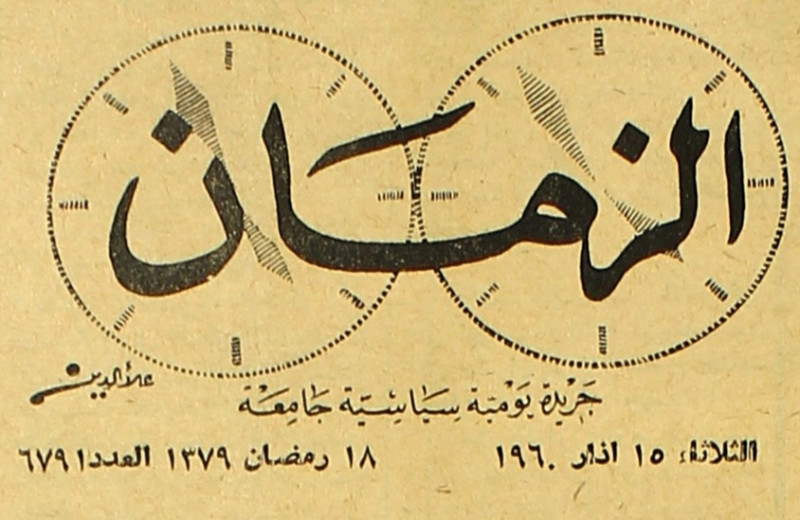 الزمان
علاء الدين
جَرْيدة يَوْميَة سيَاسْيّة جَامِعَة
الثلاثاء ١٥ اذار ١٩٦٠
١٨ رمضان ١٣٧٩ العدد ٦٧٩١